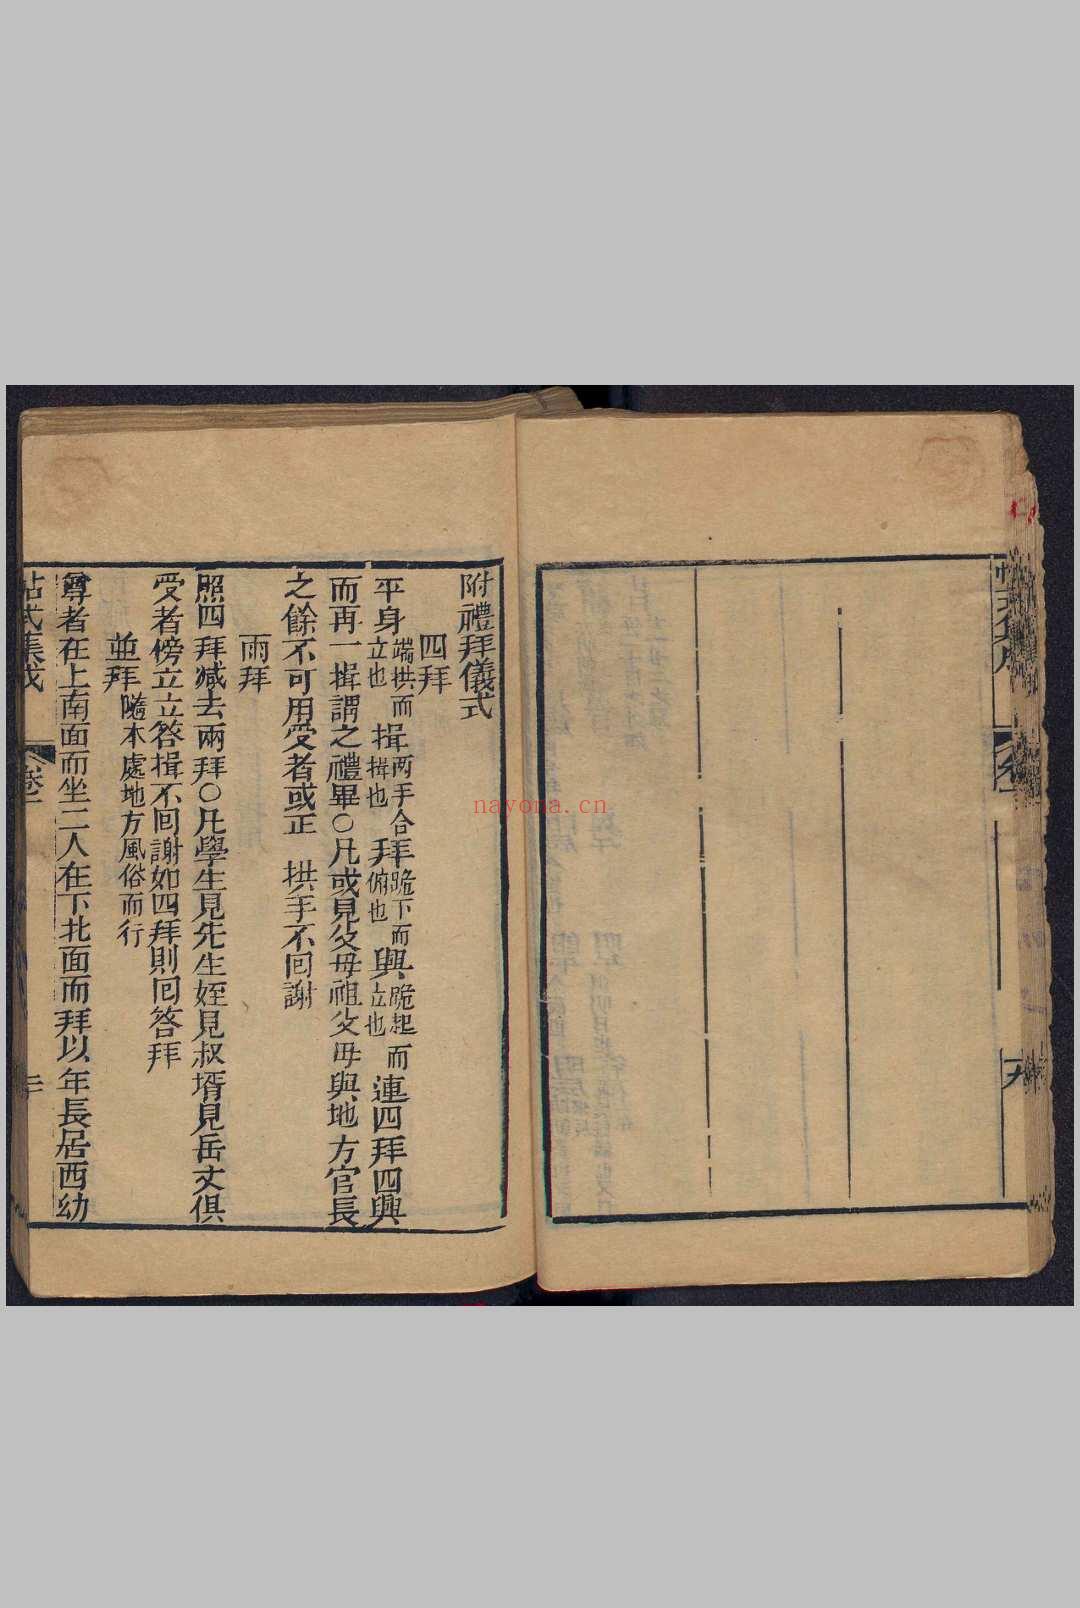 附禮拜儀式
四拜
平身端拱而立也 揖两手合揖也 拜跪下而俯也 興跪起而立也 連四拜四興
而再一揖謂之禮畢〇凡或見父母祖父母與地方官長
之餘不可用受者或正 拱手不回謝
兩拜
照四拜減去兩拜〇凡學生見先生姪見叔壻見岳丈俱
受者傍立立答揖不回謝如四拜則回答拜
並拜隨本處地方風俗而行
尊者在上南面而坐二人在下北面而拜以年長居西幼
帖式集成 卷二
nayona.cn